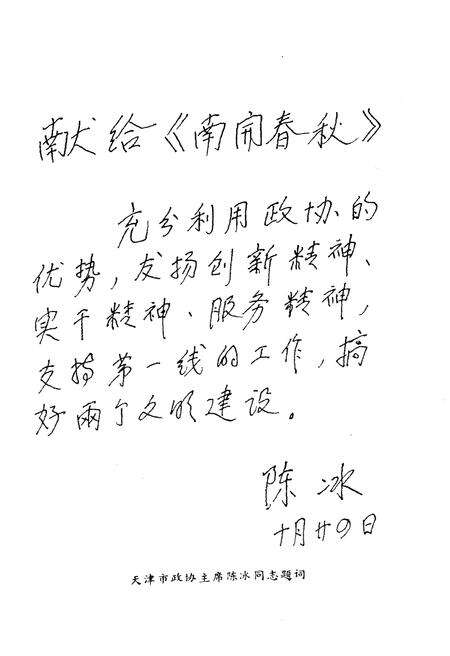 献给《南开春秋》
充分利用政协的
优势，发扬创新精神、
实干精神、服务精神，
支持第一线的工作，搞
好两个文明建设。
陈冰
十月廿四日
天津市政协主席陈冰同志题词